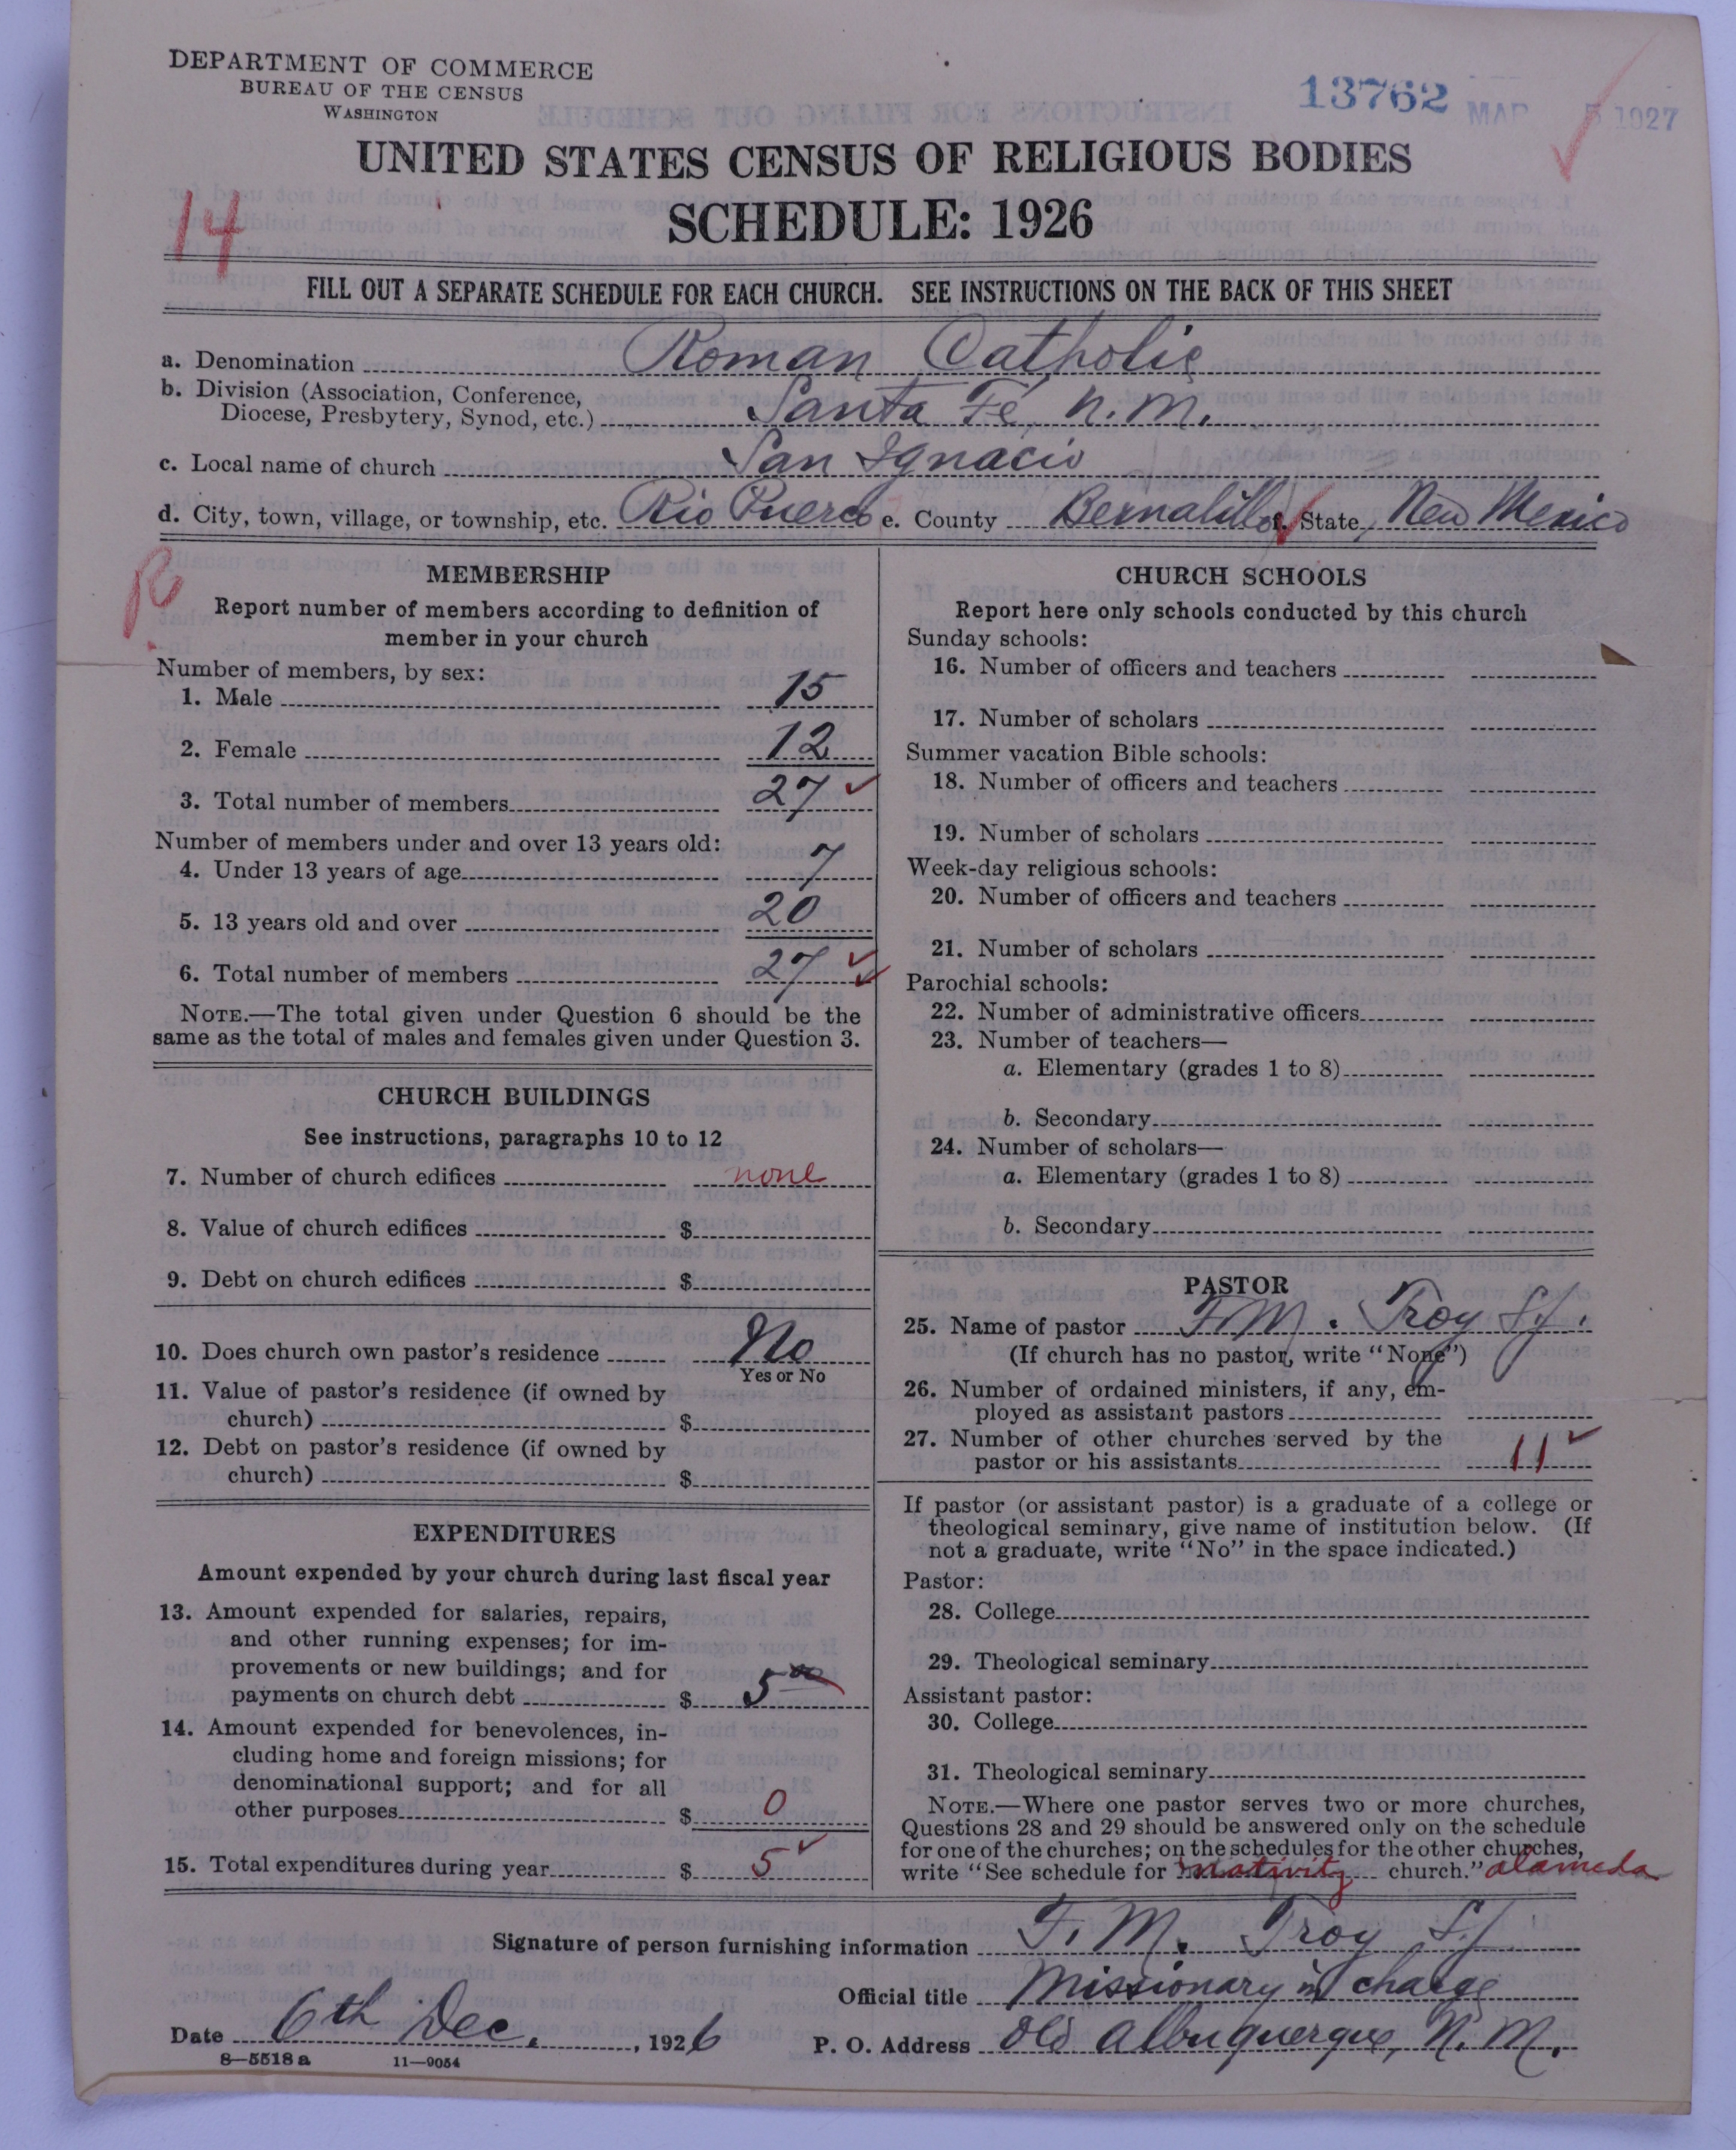 DEPARTMENT OF COMMERCE
BUREAU OF THE CENSUS
WASHINGTON
13762 MAR 5 1927
UNITED STATES CENSUS OF RELIGIOUS BODIES
14
SCHEDULE: 1926
FILL OUT A SEPARATE SCHEDULE FOR EACH CHURCH. SEE INSTRUCTIONS ON THE BACK OF THIS SHEET
a. Denomination Roman Catholic
b. Division (Association, Conference,
Diocese, Presbytery, Synod, etc.) Santa Fé, N.M.
c. Local name of church San Ignacio
d. City, town, village, or township, etc. Rio Puerco e. County Bernalillo f. State New Mexico
R
MEMBERSHIP
Report number of members according to definition of
member in your church
Number of members, by sex:
1. Male 15
2. Female 12
3. Total number of members 27
Number of members under and over 13 years old:
4. Under 13 years of age 7
5. 13 years old and over 20
6. Total number of members 27
NOTE.—The total given under Question 6 should be the
same as the total of males and females given under Question 3.
CHURCH BUILDINGS
See instructions, paragraphs 10 to 12
7. Number of church edifices none
8. Value of church edifices $
9. Debt on church edifices $
10. Does church own pastor's residence No
Yes or No
11. Value of pastor's residence (if owned by
church) $
12. Debt on pastor's residence (if owned by
church) $
EXPENDITURES
Amount expended by your church during last fiscal year
13. Amount expended for salaries, repairs,
and other running expenses; for im-
provements or new buildings; and for
payments on church debt $ 5 00
14. Amount expended for benevolences, in-
cluding home and foreign missions; for
denominational support; and for all
other purposes $ 0
15. Total expenditures during year $ 5
CHURCH SCHOOLS
Report here only schools conducted by this church
Sunday schools:
16. Number of officers and teachers
17. Number of scholars
Summer vacation Bible schools:
18. Number of officers and teachers
19. Number of scholars
Week-day religious schools:
20. Number of officers and teachers
21. Number of scholars
Parochial schools:
22. Number of administrative officers
23. Number of teachers—
a. Elementary (grades 1 to 8)
b. Secondary
24. Number of scholars—
a. Elementary (grades 1 to 8)
b. Secondary
PASTOR
25. Name of pastor F.M. Troy S.J.
(If church has no pastor, write "None")
26. Number of ordained ministers, if any, em-
ployed as assistant pastors
27. Number of other churches served by the
pastor or his assistants 11
If pastor (or assistant pastor) is a graduate of a college or
theological seminary, give name of institution below. (If
not a graduate, write "No" in the space indicated.)
Pastor:
28. College
29. Theological seminary
Assistant pastor:
30. College
31. Theological seminary
NOTE.—Where one pastor serves two or more churches,
Questions 28 and 29 should be answered only on the schedule
for one of the churches; on the schedules for the other churches,
write "See schedule for nativity church." alameda
Signature of person furnishing information F. M. Troy S.J
Official title Missionary in charge
Date 6th Dec., 1926 P. O. Address Old Albuquerque, N. M.
8—5518 a 11—9054